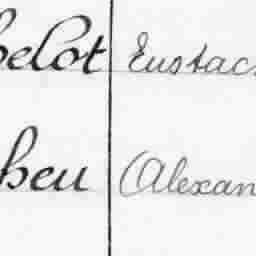 belot Eustac
heu (Alexan